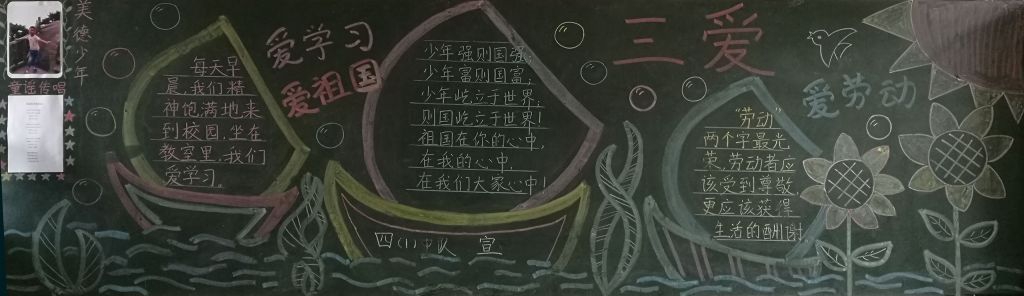 美德少年
童谣传唱
爱学习
爱祖国
三爱
爱劳动
每天早
晨,我们精
神饱满地来
到校园,坐在
教室里,我们
爱学习。
少年强则国强,
少年富则国富,
少年屹立于世界,
则国屹立于世界!
祖国在你的心中,
在我的心中
在我们大家心中!
四(1)中队 宣
"劳动"
两个字最光
荣、劳动者应
该受到尊敬
更应该获得
生者的酬谢